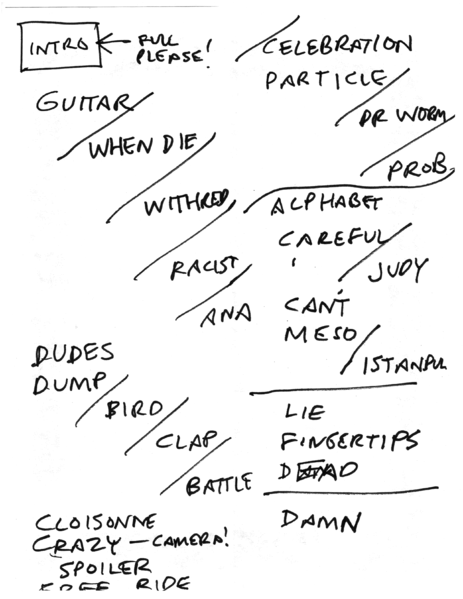 INTRO ← FULL
PLEASE!
GUITAR
WHEN DIE
WITHRED
RACIST
ANA
DUDES
DUMP
BIRD
CLAP
BATTLE
CLOISONNE
CRAZY — CAMERA!
SPOILER
FREE RIDE
CELEBRATION
PARTICLE
DR WORM
PROB.
ALPHABET
CAREFUL
JUDY
CAN'T
MESO
ISTANPUL
LIE
FINGERTIPS
DEAD
DAMN